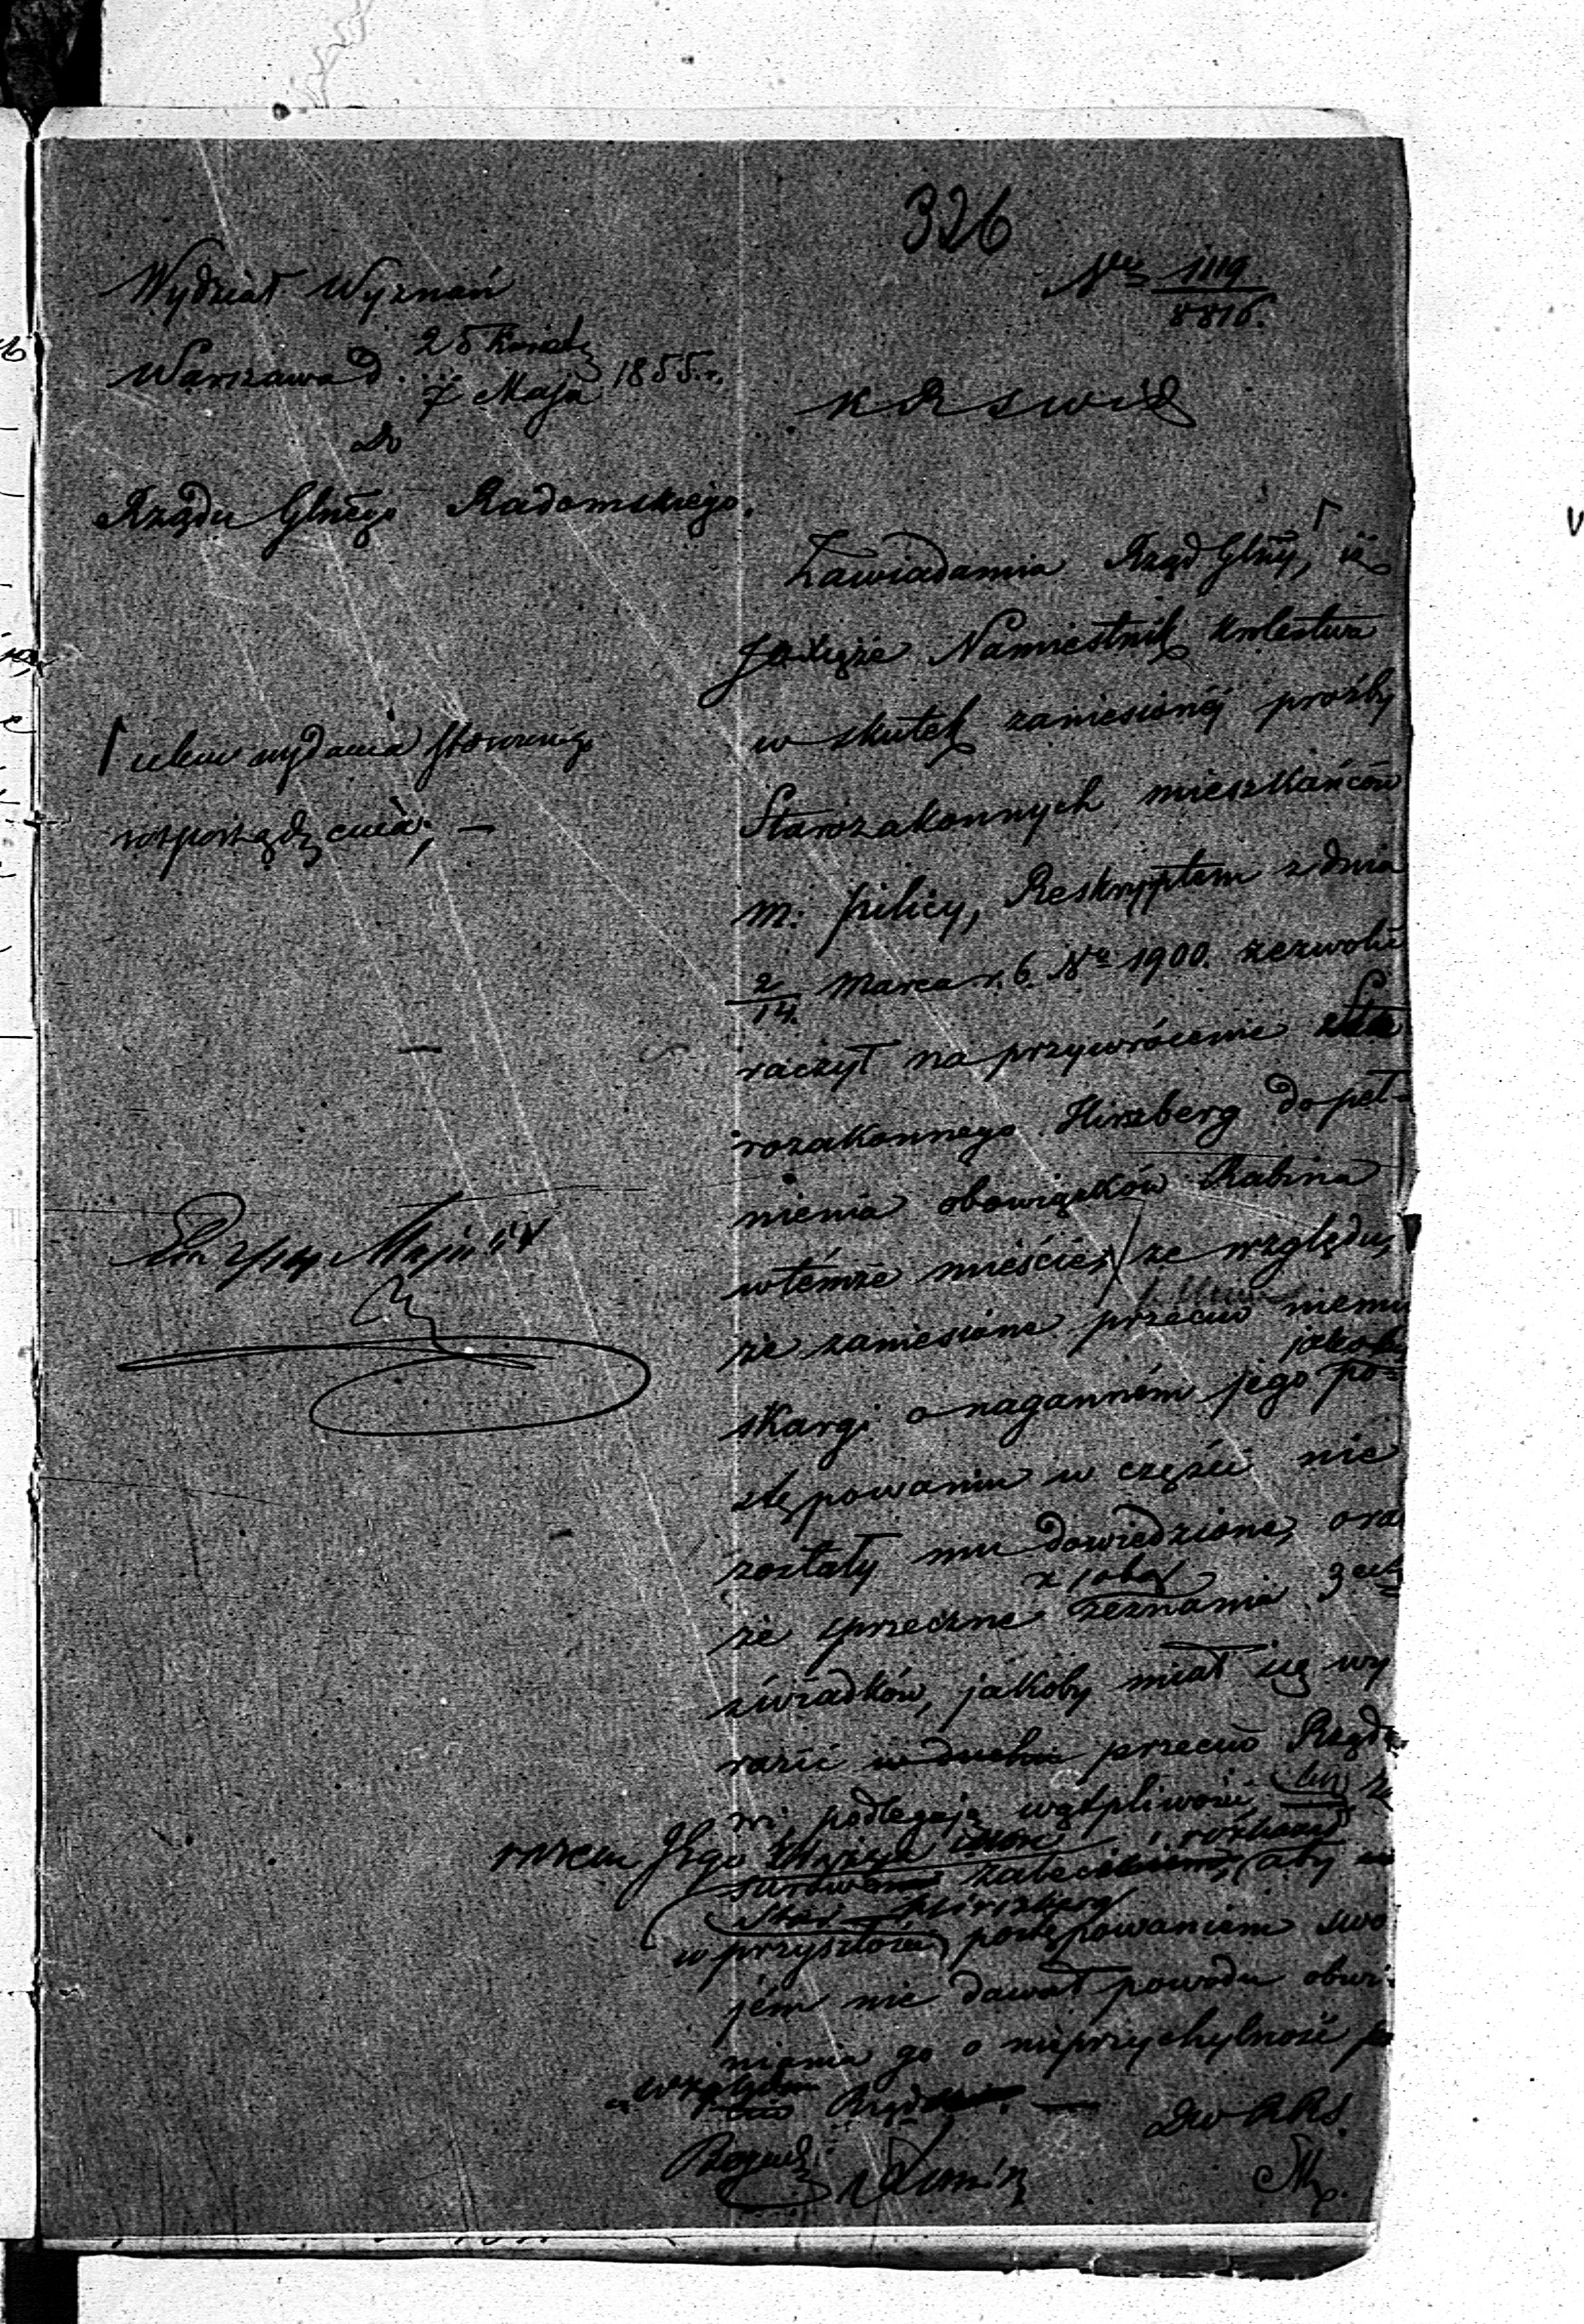 326
Wydział Wyznań
No 1119
8816.
Warszawa d. 25 Kwiet 1855 r.
7 Maja
KRSWiD
do
Rządu Glnego Radomskiego.
Zawiadamia Rząd Glny, iż
JO Xiąże Namiestnik Królestwa
w skutek zaniesionéj prośby
Starozakonnych mieszkańców
m: Pilicy, Reskryptem z dnia
2/14 Marca r. b. No 1900. zezwolić
raczył na przywrócenie Sta
rozakonnego Hirszberg do peł-
nienia obowiązków Rabina
w témże mieście, ze względu,
że zaniesione przeciw niemu
skargi o naganném jego po=
jakoby
stępowaniu w części nie
zostały mu dowiedzione, ora
że sprzeczne zeznania 3ch
z sobą
świadków, jakoby miał się wy
razić w duchu przeciw Rządo
wi podlegają wątpliwości,
zaleceniem, aby
Hirszberg
w przyszłości postępowaniem swo
jém nie dawał powodu obwi-
nienia go o nieprzychylność
względem
Rządowi. —
Dw KRS.
celem wydania stosownego
rozporządzenia; —